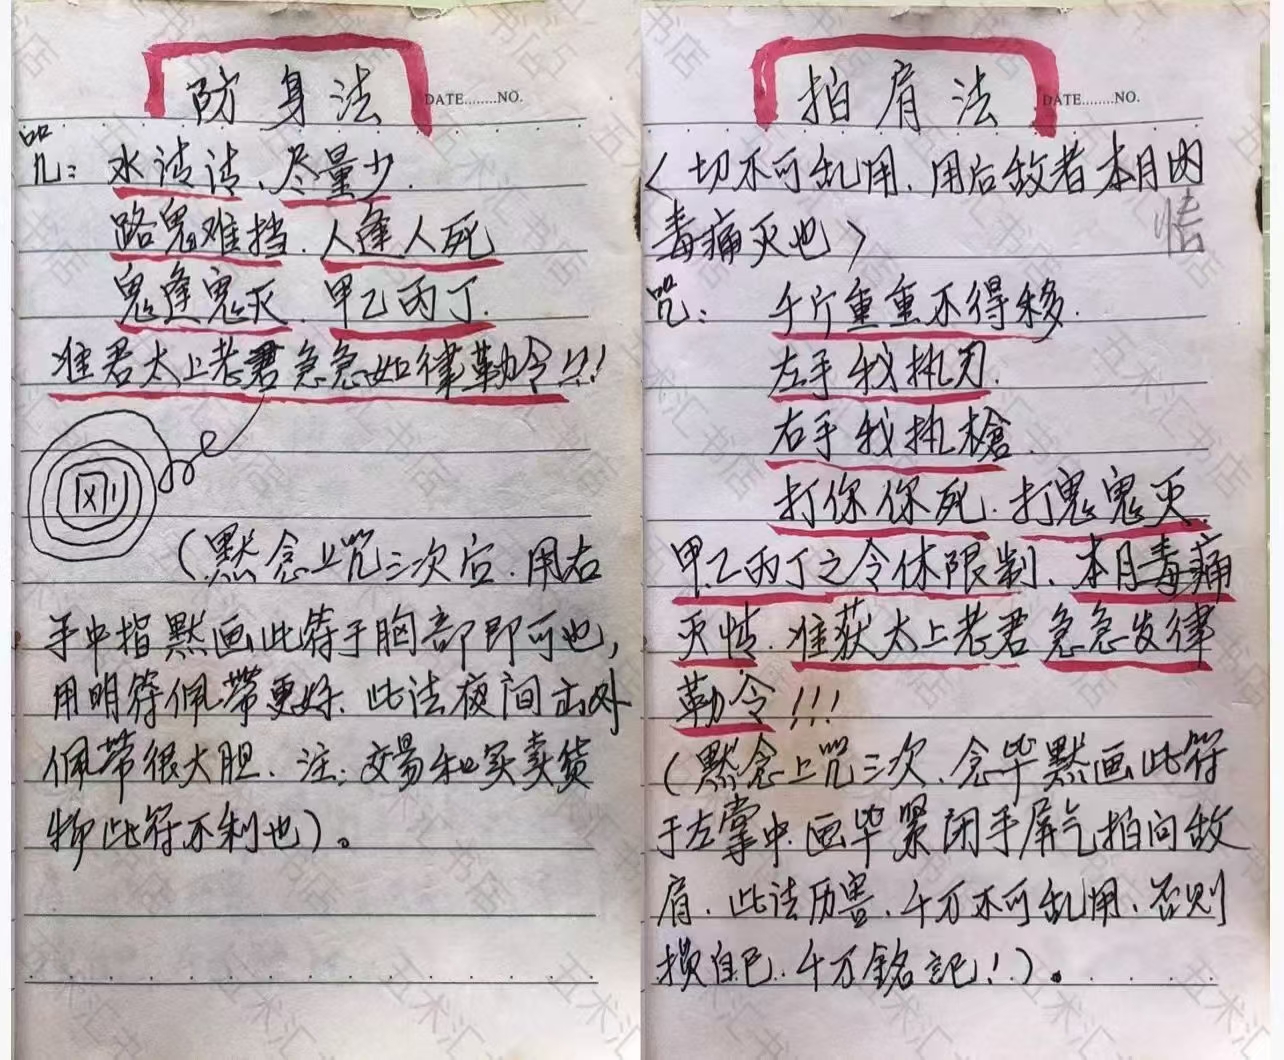 防身法
DATE........NO.
咒：水洁洁、尽量少.
路鬼难挡.人逢人死
鬼逢鬼灭.甲乙丙丁.
准君太上老君急急如律勒令!!!
刚
(默念上咒三次后.用右
手中指黙画此符于胸部即可也,
用明符佩带更好.此法夜间出外
佩带很大胆.注:交易和买卖货
物此符不利也)。
拍肩法
DATE........NO.
〈切不可乱用.用后敌者本月内
毒痛灭也〉
咒：千斤重重不得移.
左手我执刃.
右手我执槍.
打你你死.打鬼鬼灭.
甲乙丙丁之令休限制、本月毒痛
灭悟.准获太上老君急急发律
勒令!!!
(黙念上咒三次、念毕黙画此符
于左掌中.画毕紧闭手屏气拍向敌
肩.此法历害、千万不可乱用、否则
损自己.千万銘記!)。
悟
五术汇书店